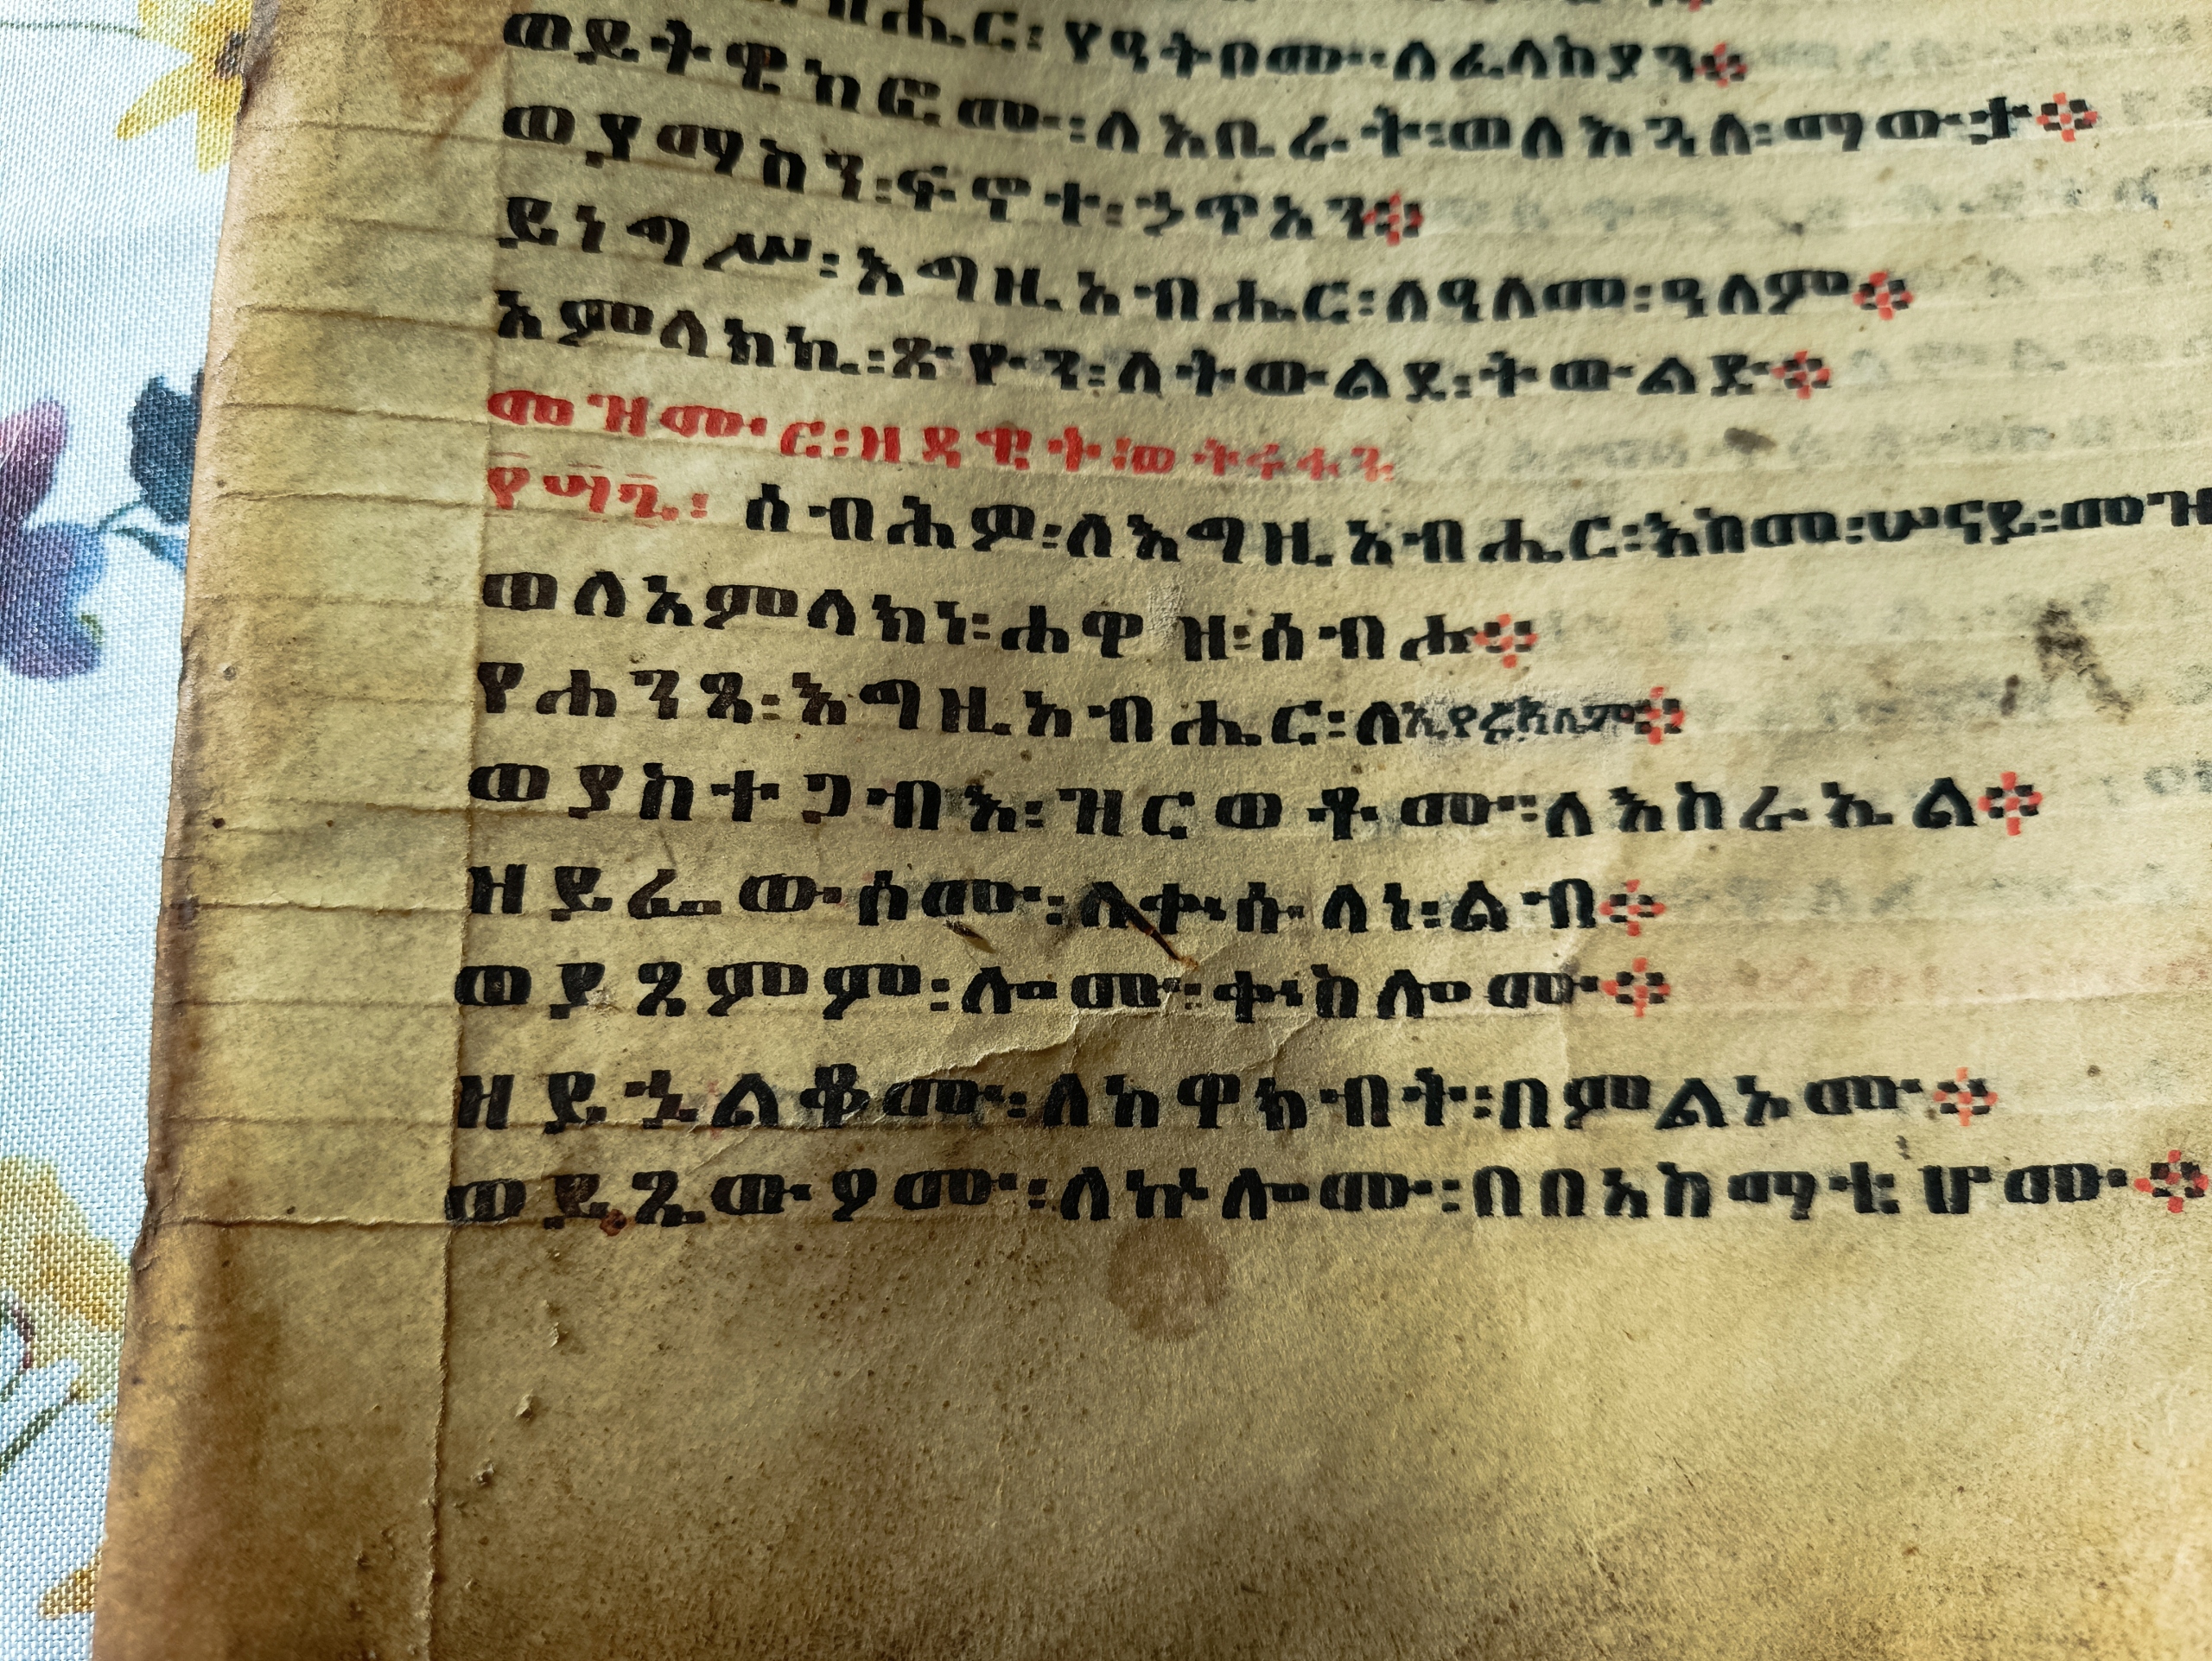 ወይትዌከፎሙ፡ለእቤራት፡ወለእጓለ፡ማውታ።
ወያማስን፡ፍኖተ፡ኃጥአን።
ይነግሥ፡እግዚአብሔር፡ለዓለመ፡ዓለም።
አምላክኪ፡ጽዮን፡ለትውልደ፡ትውልድ።
መዝሙር፡ዘዳዊት፡ወትፍሥሕን
፻፵፮፡ ሰብሕዎ፡ለእግዚአብሔር፡እስመ፡ሠናይ፡መዝ
ወለአምላክነ፡ሐዋዝ፡ሰብሖ።
የሐንጻ፡እግዚአብሔር፡ለኢየሩሳሌም።
ወያስተጋብእ፡ዝርወቶሙ፡ለእስራኤል።
ዘይፌውሶሙ፡ለቍሱላነ፡ልብ።
ወያጸምም፡ሎሙ፡ቍስሎሙ።
ዘይኄልቆሙ፡ለከዋክብት፡በምልኦሙ።
ወይጼውዖሙ፡ለኵሎሙ፡በበአስማቲሆሙ።